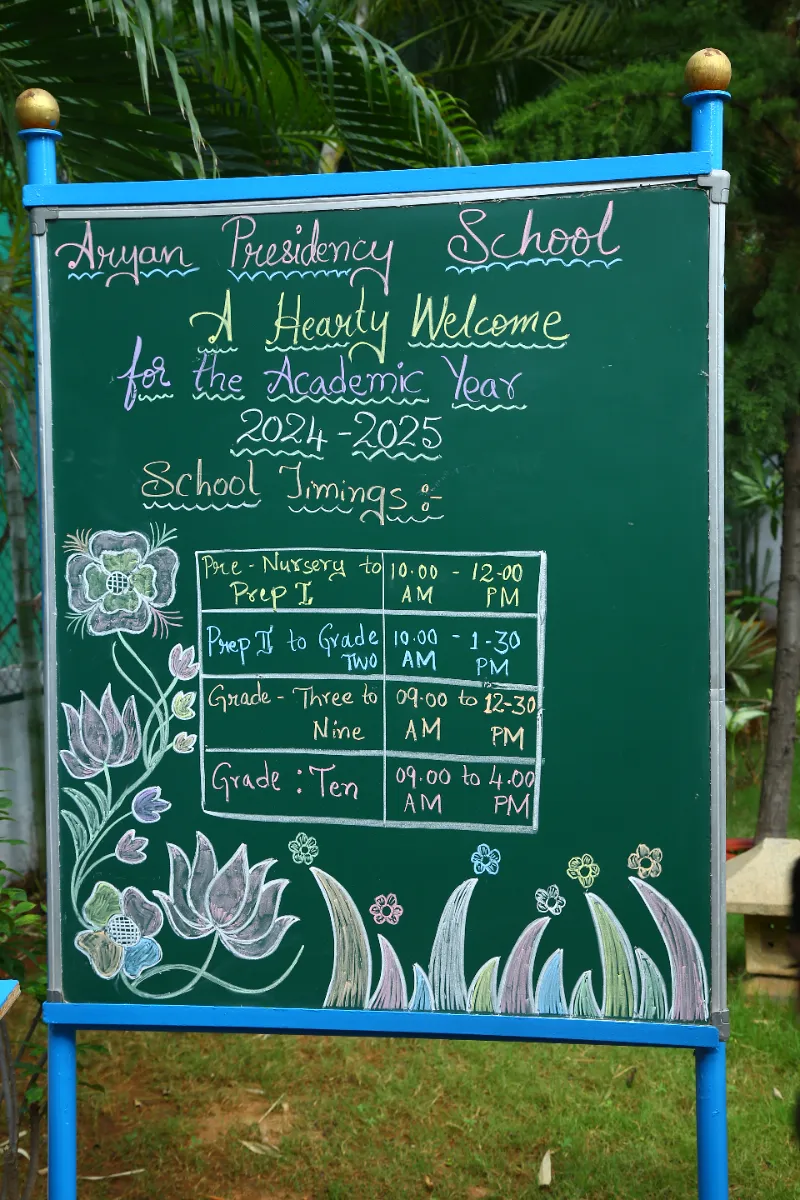 Aryan Presidency School
A Hearty Welcome
for the Academic Year
2024-2025
School Timings :-
Pre-Nursery to 10.00 - 12-00
Prep I AM PM
Prep II to Grade 10.00 - 1-30
TWO AM PM
Grade - Three to 09.00 to 12-30
Nine AM PM
Grade : Ten 09.00 to 4.00
AM PM